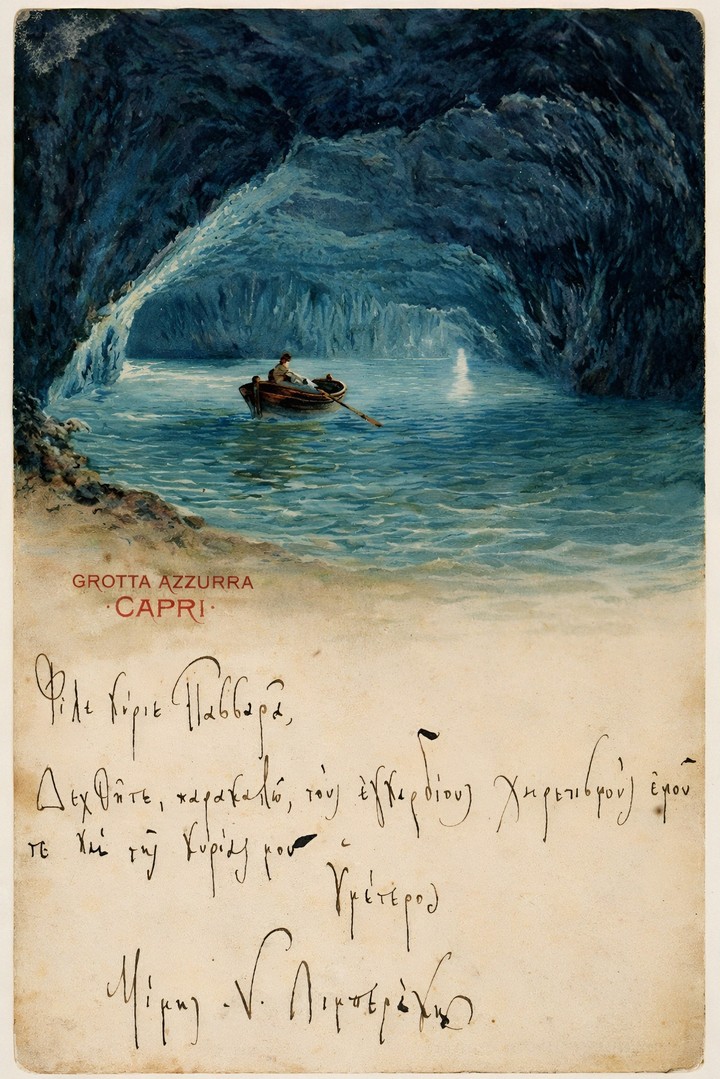 GROTTA AZZURRA
·CAPRI·
Φίλε Κύριε Πασσαρᾶ,
Δεχθῆτε, παρακαλῶ, τοὺς ἐγκαρδίους χαιρετισμοὺς ἐμοῦ
τε καὶ τῆς Κυρίας μου
Ὑμέτερος
Μίμης Ν. Λιμπεράκης